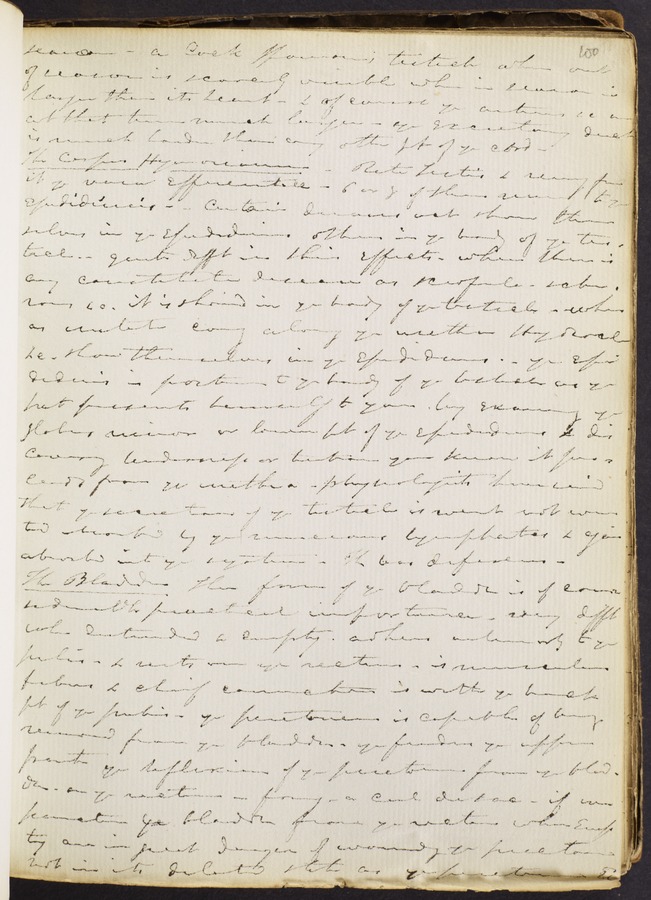 150
season - a Cock Sparrow's testicle when out
of season is scarcely visible when in season is
larger than its heart - & of course ye
at that time much larger - ye Excretory duct
is much harder than any other pt of ye chord -
The Corpus Hygmoreanum - Rete Testis & runing from
it ye vasa Efferentia - 6 or 8 of them runing to ye
Epididimis - Certain diseases will show them
selves in ye Epididimis others in ye body of ye tes-
ticle - quite difft in their effects - when there is
any constitutl disease as scrofula - schir-
rous &c. it is shown in ye body of ye testicle - when
as coming along ye urethra Hydrocele
&c. show themselves in ye Epididimus - ye Epi-
didimis is posterior to ye body of ye testicle as ye
pat presents himself to you. by examing ye
globus minor or lower pt of ye Epididimis & dis
covering tenderness or you know it pro-
ceeds from ye urethra - physiologists have said
that ye secretion of ye testicle is went not
ted absorbd by ye numerous lymphatics & again
absorbd into ye system - Vas deferens -
The Bladder The form of ye bladder is of cons
iderable practical importance - very difft
when distended & empty. adheres to ye
pubis - & rests on ye rectum - is muscular
fibrous & chief connection is with ye back
pt of ye pubis - ye peritoneum is capable of being
removed from ye bladder - ye fundus ye upper
part ye reflexion of ye peritoneum from ye blad-
der - on ye rectum - forming a cul de sac - if we
puncture ye bladder from ye rectum when Emp
ty are in great danger of wounding ye peritoneum
not in its dilated state as ye peritoneum is